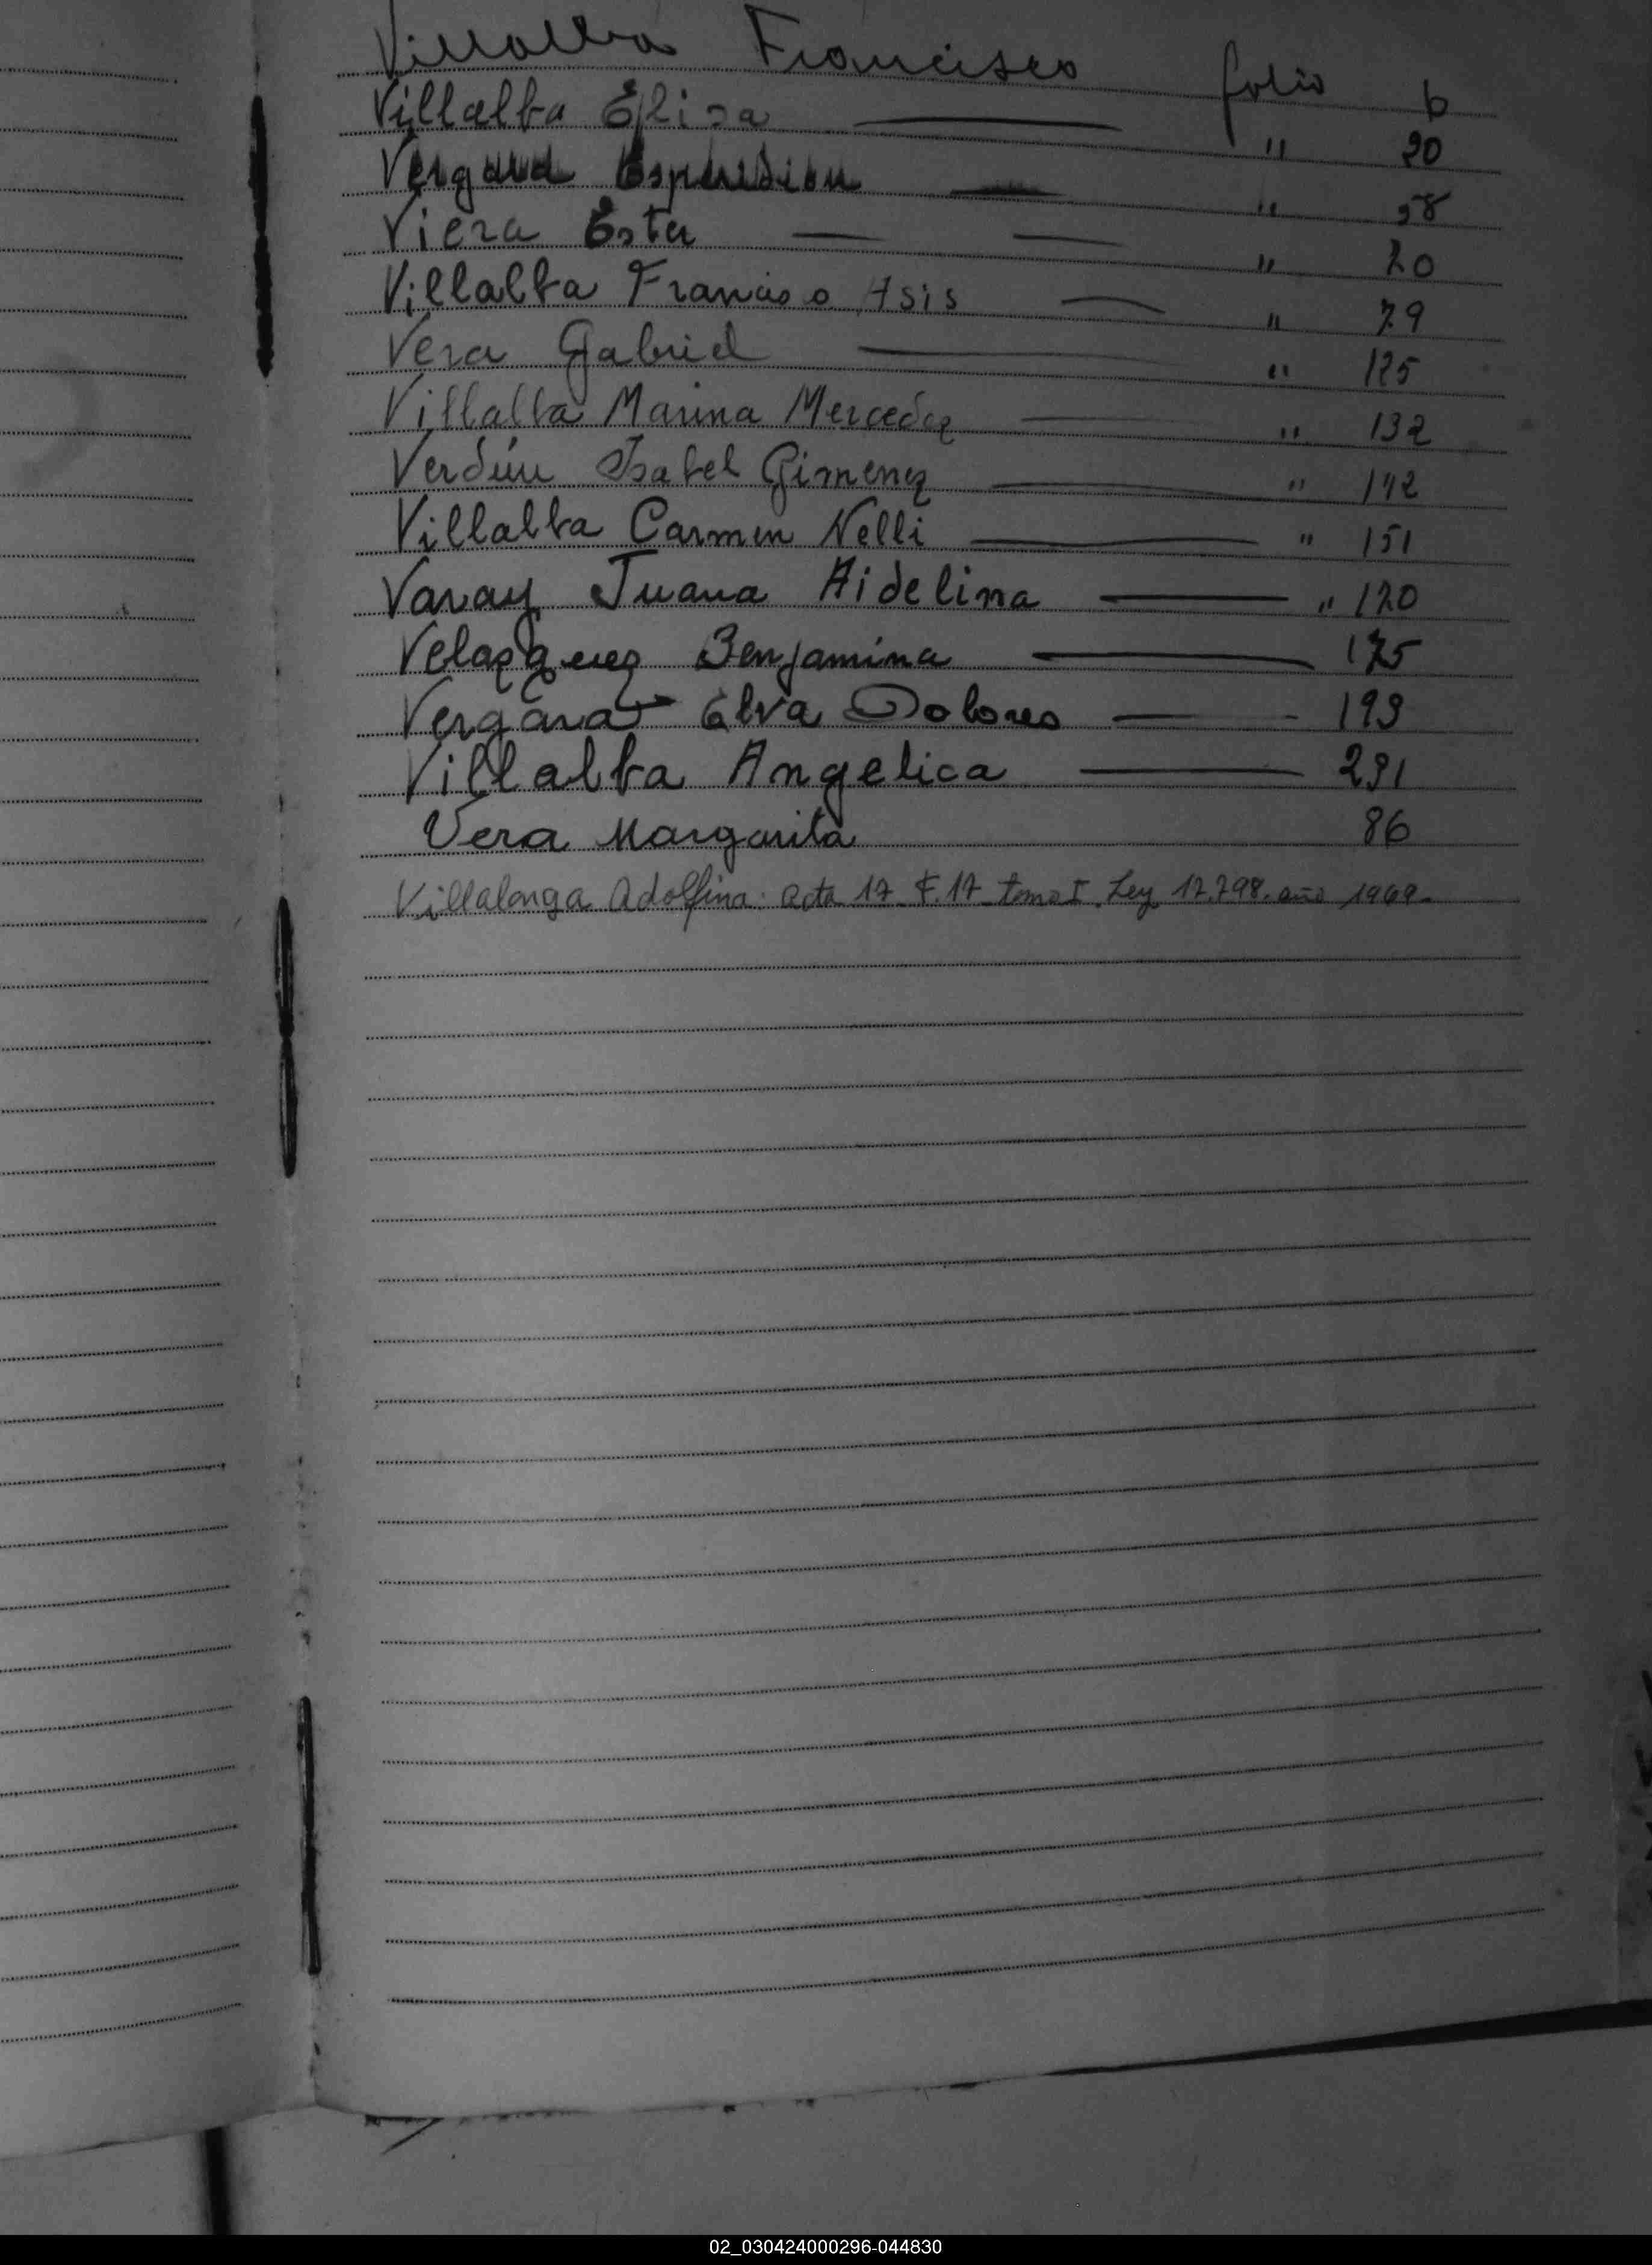 Villalba Francisco folio 6
Villalba Elisa — " 20
Vergara — "
Viera Ester — — " 20
Villalba Francisco Asis — " 79
Vera Gabriel — " 125
Villalba Marina Mercedez — " 132
Verdún Isabel Gimenez — " 142
Villalba Carmen Nelli — " 151
Varay Juana Aidelina — " 120
Velazquez Benjamina — 175
Vergara Elva Dolores — 193
Villalba Angelica — 291
Vera Margarita 86
Villalonga Adolfina. acta 17 F. 17 tomo I. Ley 17.798. año 1969.
02_030424000296-044830